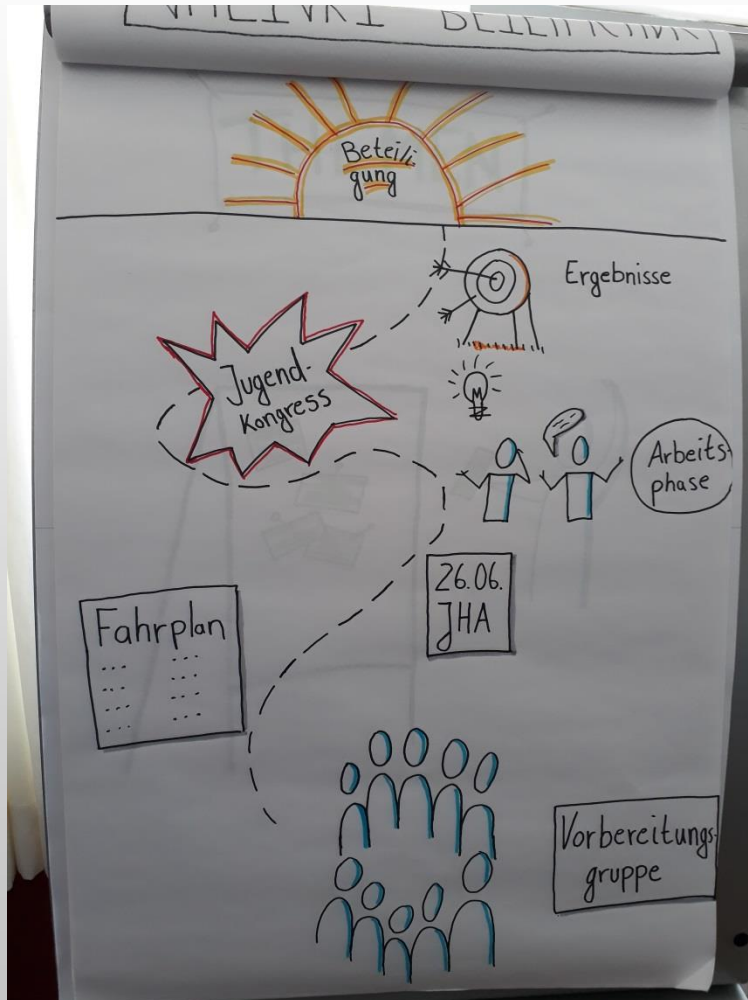 Beteili
gung
Ergebnisse
Jugend-
kongress
Arbeits-
phase
26.06.
JHA
Fahrplan
Vorbereitungs-
gruppe